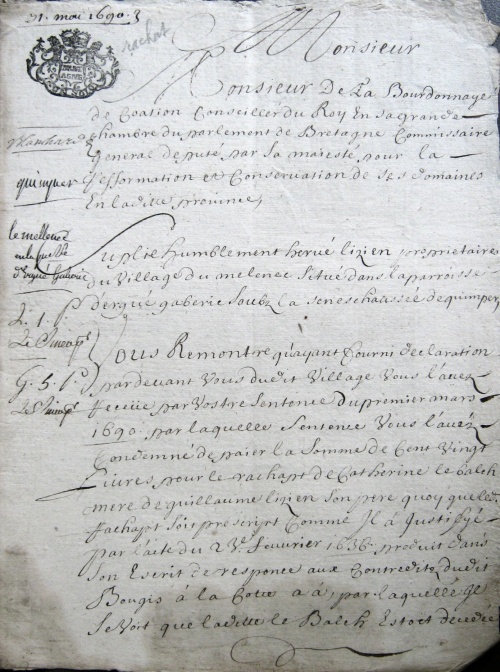 31. mai 1690
rachat
Monsieur
Monsieur De La Bourdonnaye
de Coation Conseiller du Roy En sa grande
chambre du parlement de Bretagne Commissaire
General deputé par Sa maiesté pour la
Refformation et Conservation de ses domaines
En ladite province,
quimper
le mellenec
en la
d'ergué Gaberic
Suplie humblement hervé lizien proprietaire
du Village du melenec Situé dans la parroisse
d'ergue gaberic Soubz la seneschaussée de quimper,
Vous Remontre qu'ayant fourni declaration
pardevant Vous dudit Village Vous l'avez
par Vostre Sentence du premier mars
1690 par laquelle Sentence Vous l'avez
Condemné de paier la Somme de Cent Vingt
Livres pour le rachapt de Catherine le balch
mere de guillaume lizien Son pere quoy que led.
Rachapt Soit prescript Comme Il a Justifyé
par l'acte du 23e feuvrier 1636 produit dans
Son Escrit de responce aux Contredits dudit
Bougis à la Cotte a a, par laquelle Il
Se Voit que ladite le Balch Estoit decedée